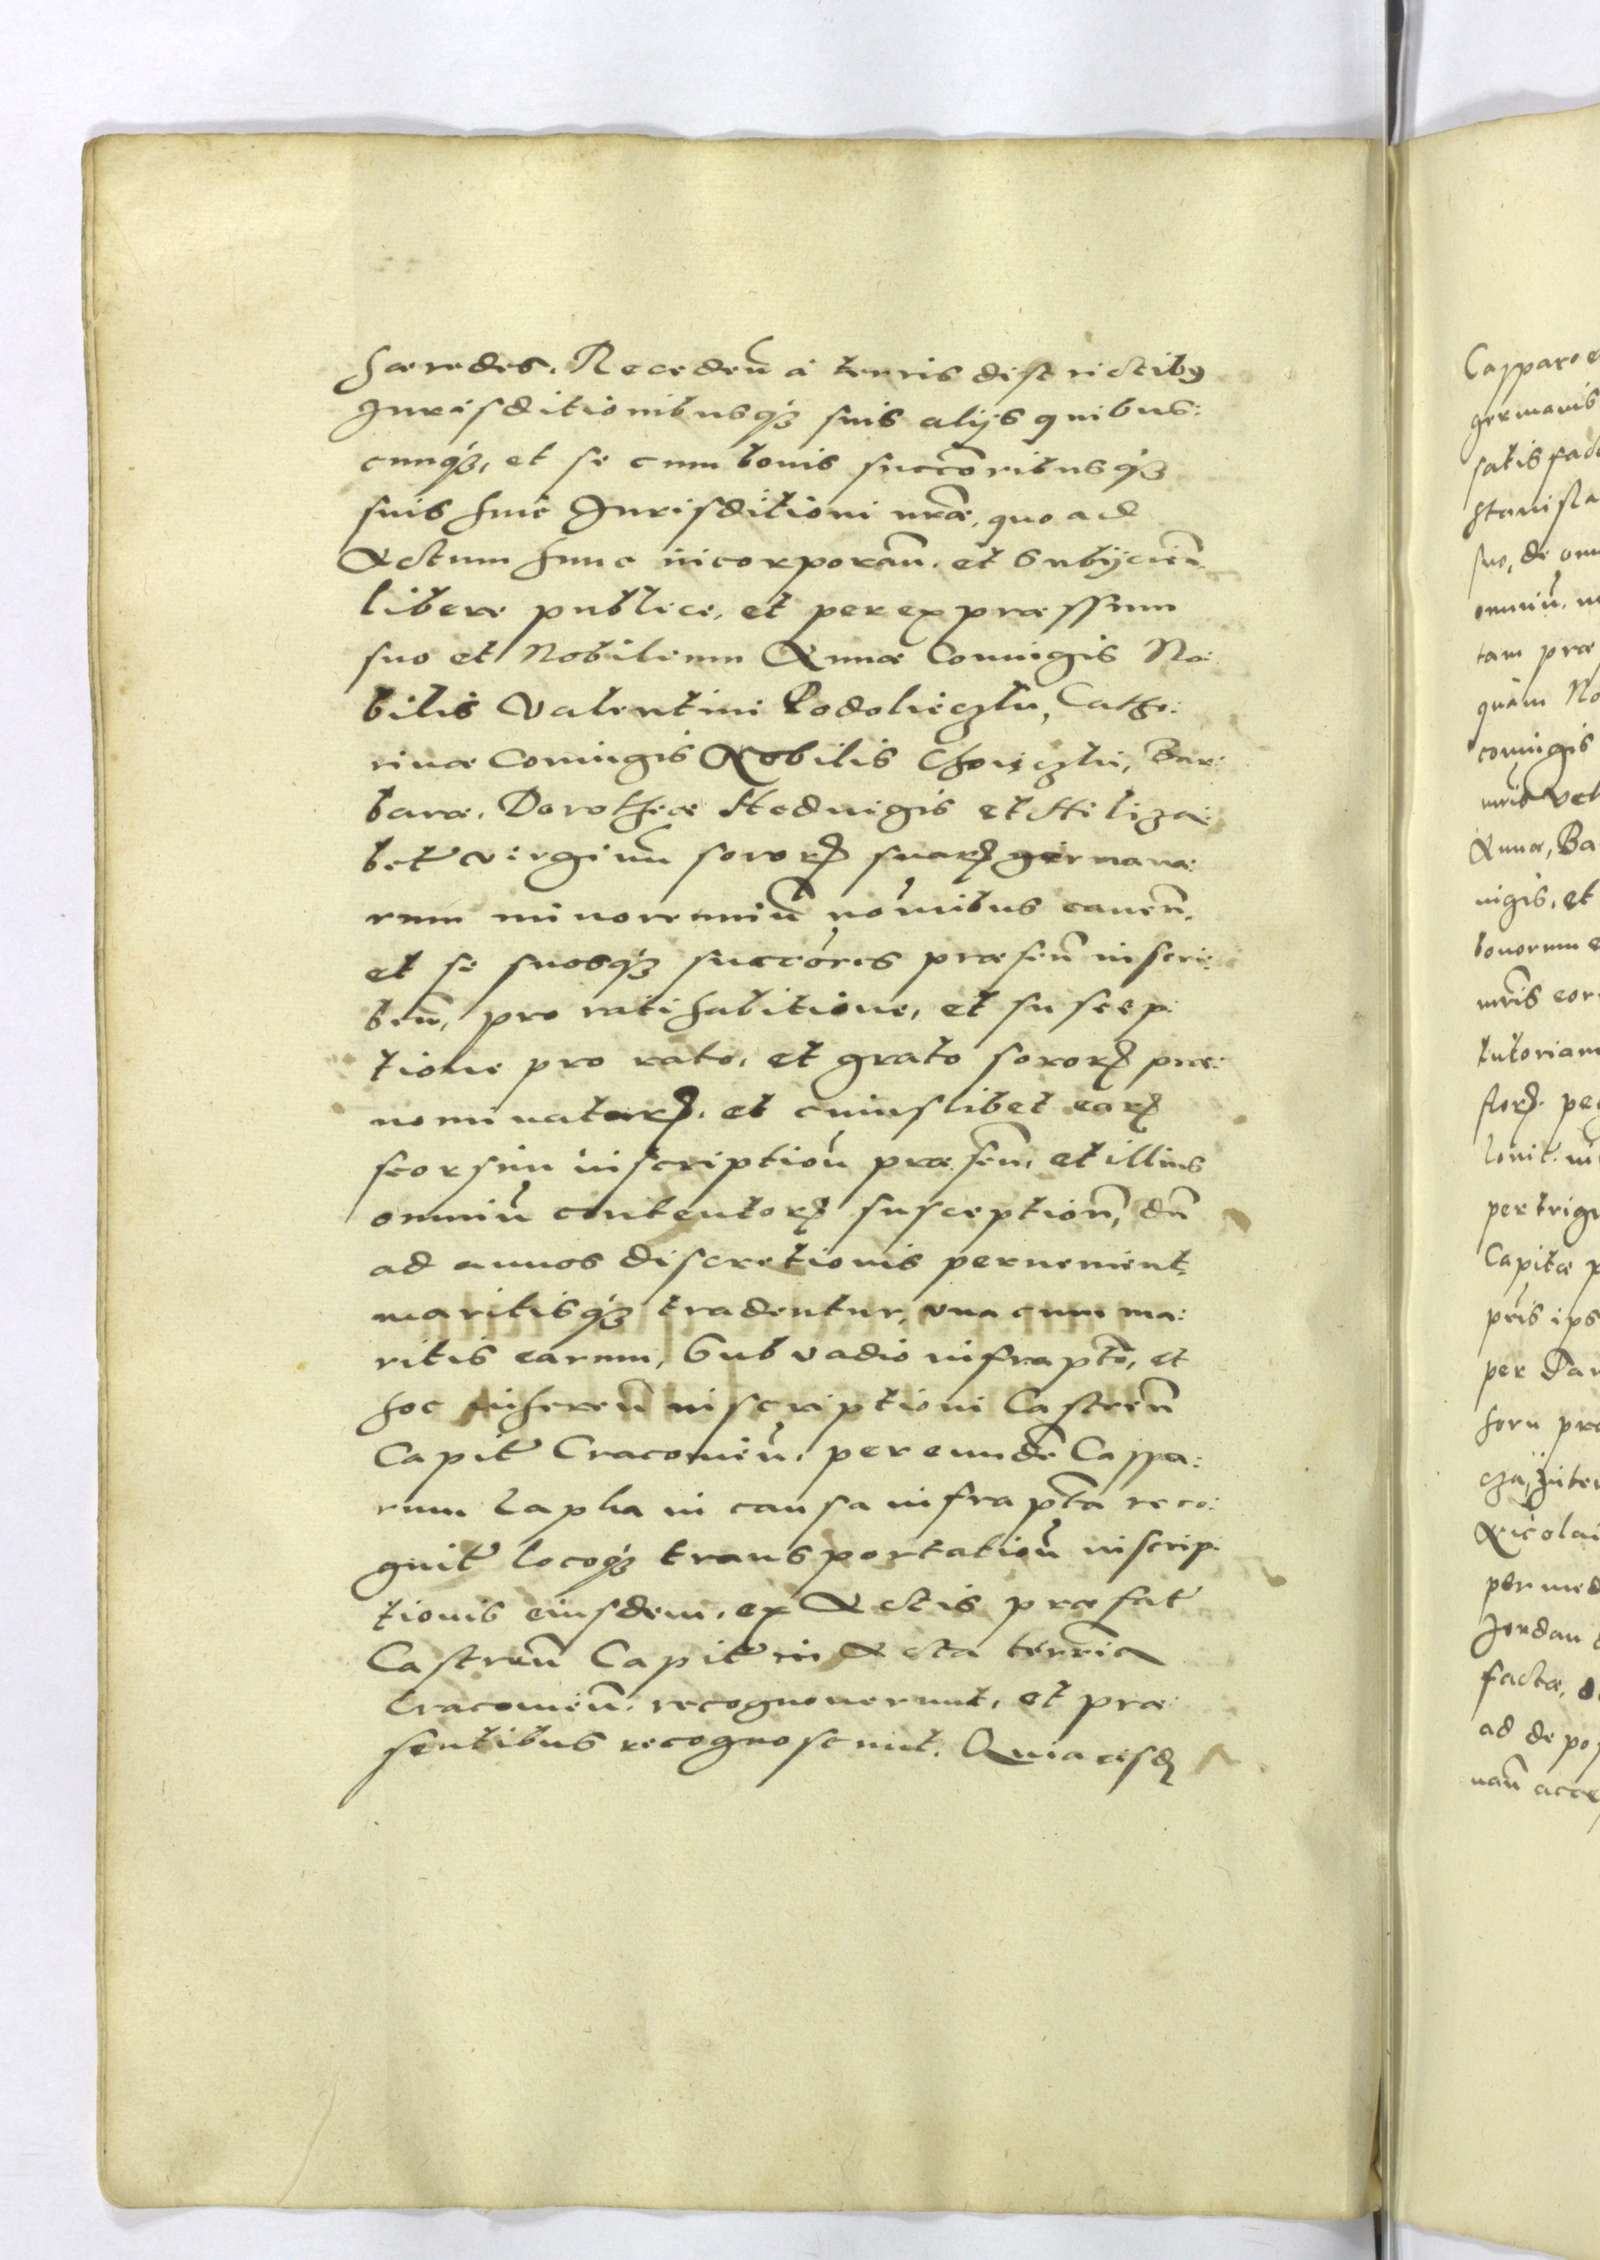 haeredes. Recedeñ a terris districtibꝰ
Jurisditionibusqꝫ suis alijs quibus:
cunqꝫ, et se cum bonis succōribusqꝫ
suis huic Jurisditioni nr̃ae, quo ad
Actum hunc incorporañ. et Subijcieñ
libere publice, et per expraessum
suo et Nobilium Annae Coniugis No:
bilis Valentini Podolieczki, Cathe:
rinae Coniugis Nobilis Choieczki, Bar:
barae, Dorotheae Heduigis et Helizae:
beth virginũ sororꝝ suarꝝ germana:
rum minorenniũ nõinibus caueñ.
et se suosqꝫ succōres praeseñ inscri:
beñ, pro ratihabitione, et suscep:
tione pro rato, et grato sororꝝ prae:
nominatarꝝ. et cuiuslibet earꝝ
seorsim inscriptioñ praeseñ, et illius
omniũ contentorꝝ susceptioñ, dũ
ad annos discretionis peruenient
maritisqꝫ tradentur, vna cum ma:
ritis earum, Sub vadio infrapto, et
hoc inhereñ inscriptioni Castreñ
Capit Cracouieñ, per eundẽ Caspa:
rum Lapka in causa infrapta reco:
gnit locoqꝫ transportatioñ inscrip:
tionis eiusdem, ex Actis praefat
Castreñ Capit in Acta terrẽa
Cracouieñ. recognouerunt, et prae:
sentibus recognoscunt. Quia eisdꝫ
Casparo
germanis
satisfac
Stanisla
suo, de om
omniũ, 
tam prae
quàm No
coniugis
uel
Annae, Ba
uigis, et
bonorum e
tutoriam
per trig
Capitae p
per Dan
foru pro
Nicolai
per med
Jordan
factae,
ad depos
nañ acce